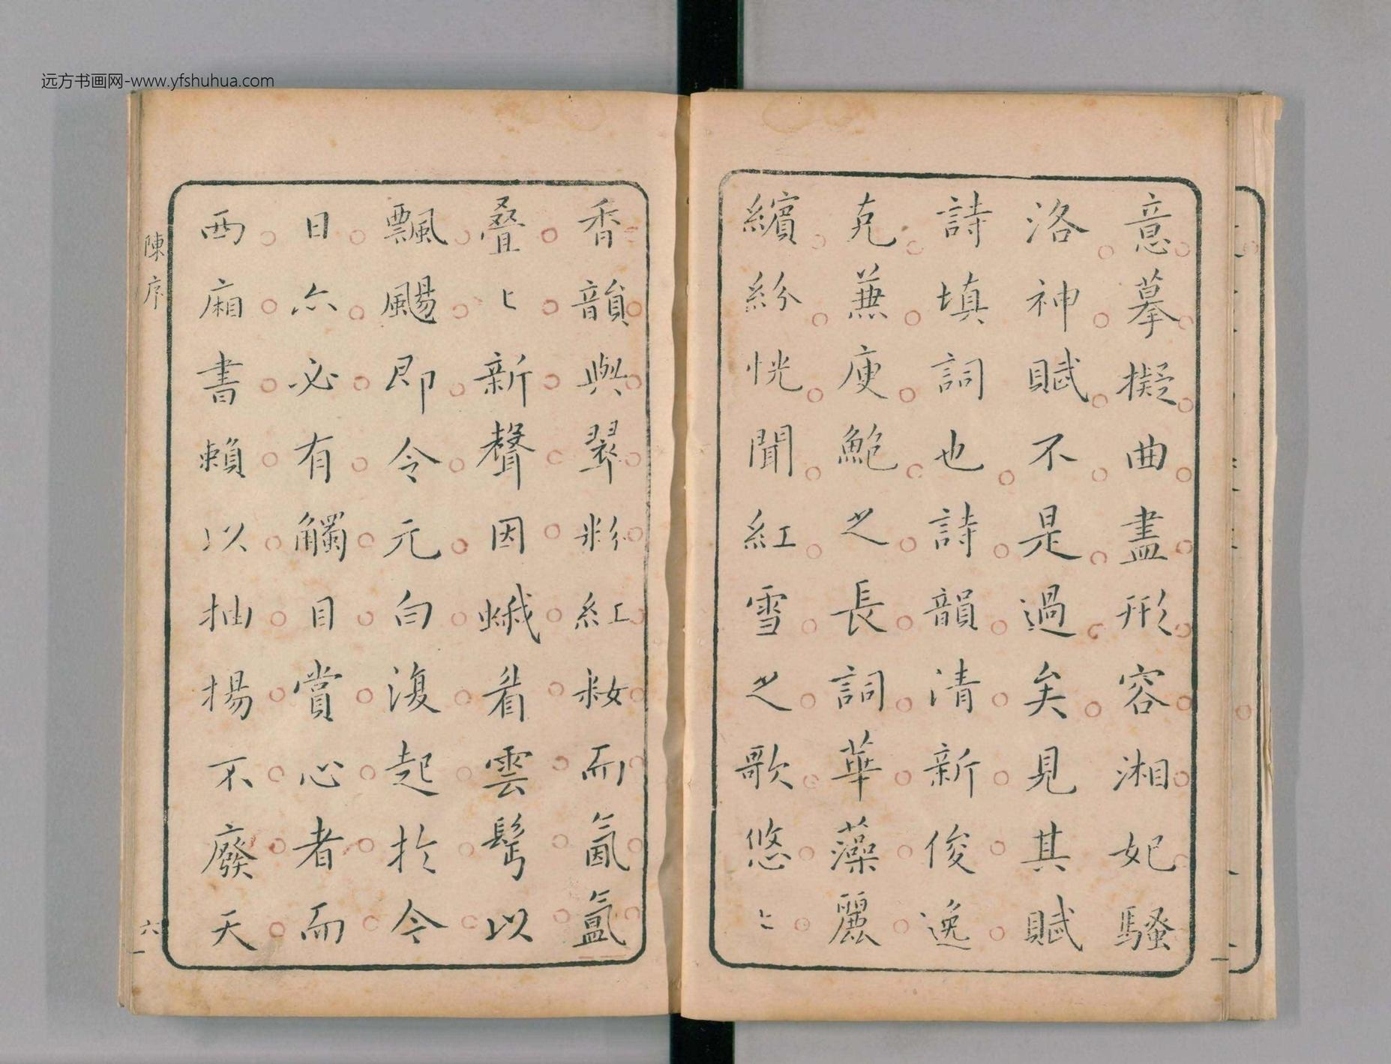 远方书画网-www.yfshuhua.com
意摹擬曲盡形容湘妃騷
洛神賦不是過矣見其賦
詩填詞也詩韻清新俊逸
克兼庾鮑之長詞華藻麗
繽紛恍聞紅雪之歌悠〻
香韻與翠粉紅籹而氤氳
疊〻新聲因蛾眉雲髩以
飄颺即令元白復起於今
日亦必有觸目賞心者而
西廂書賴以抽揚不廢天
陳序
六